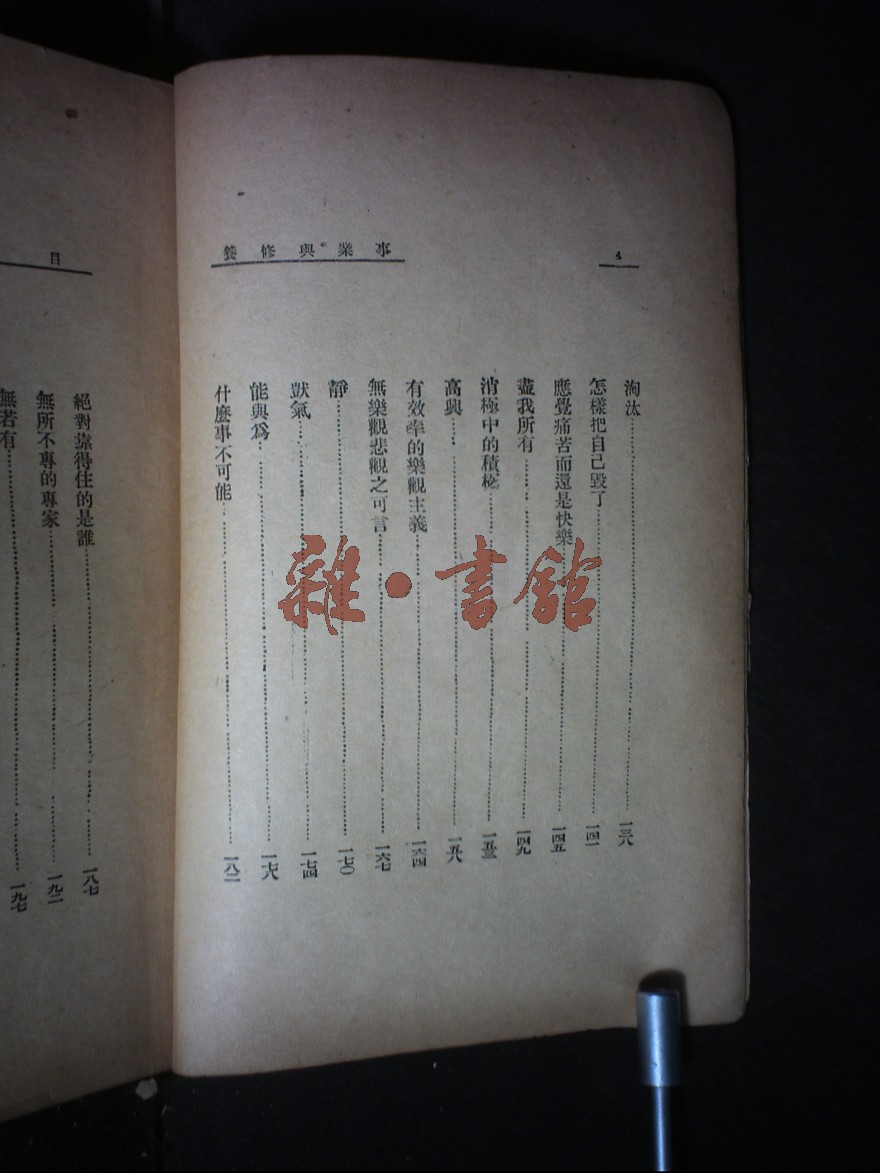 事業與修養
4
淘汰……一三八
怎樣把自己毀了……一四一
應覺痛苦而還是快樂……一四五
盡我所有……一四九
消極中的積極……一五三
高興……一五八
有效率的樂觀主義……一六四
無樂觀悲觀之可言……一六七
靜……一七〇
獃氣……一七四
能與為……一七八
什麼事不可能……一八二
目
絕對靠得住的是誰……一八七
無所不專的專家……一九二
無若有……一九七
雜·書館